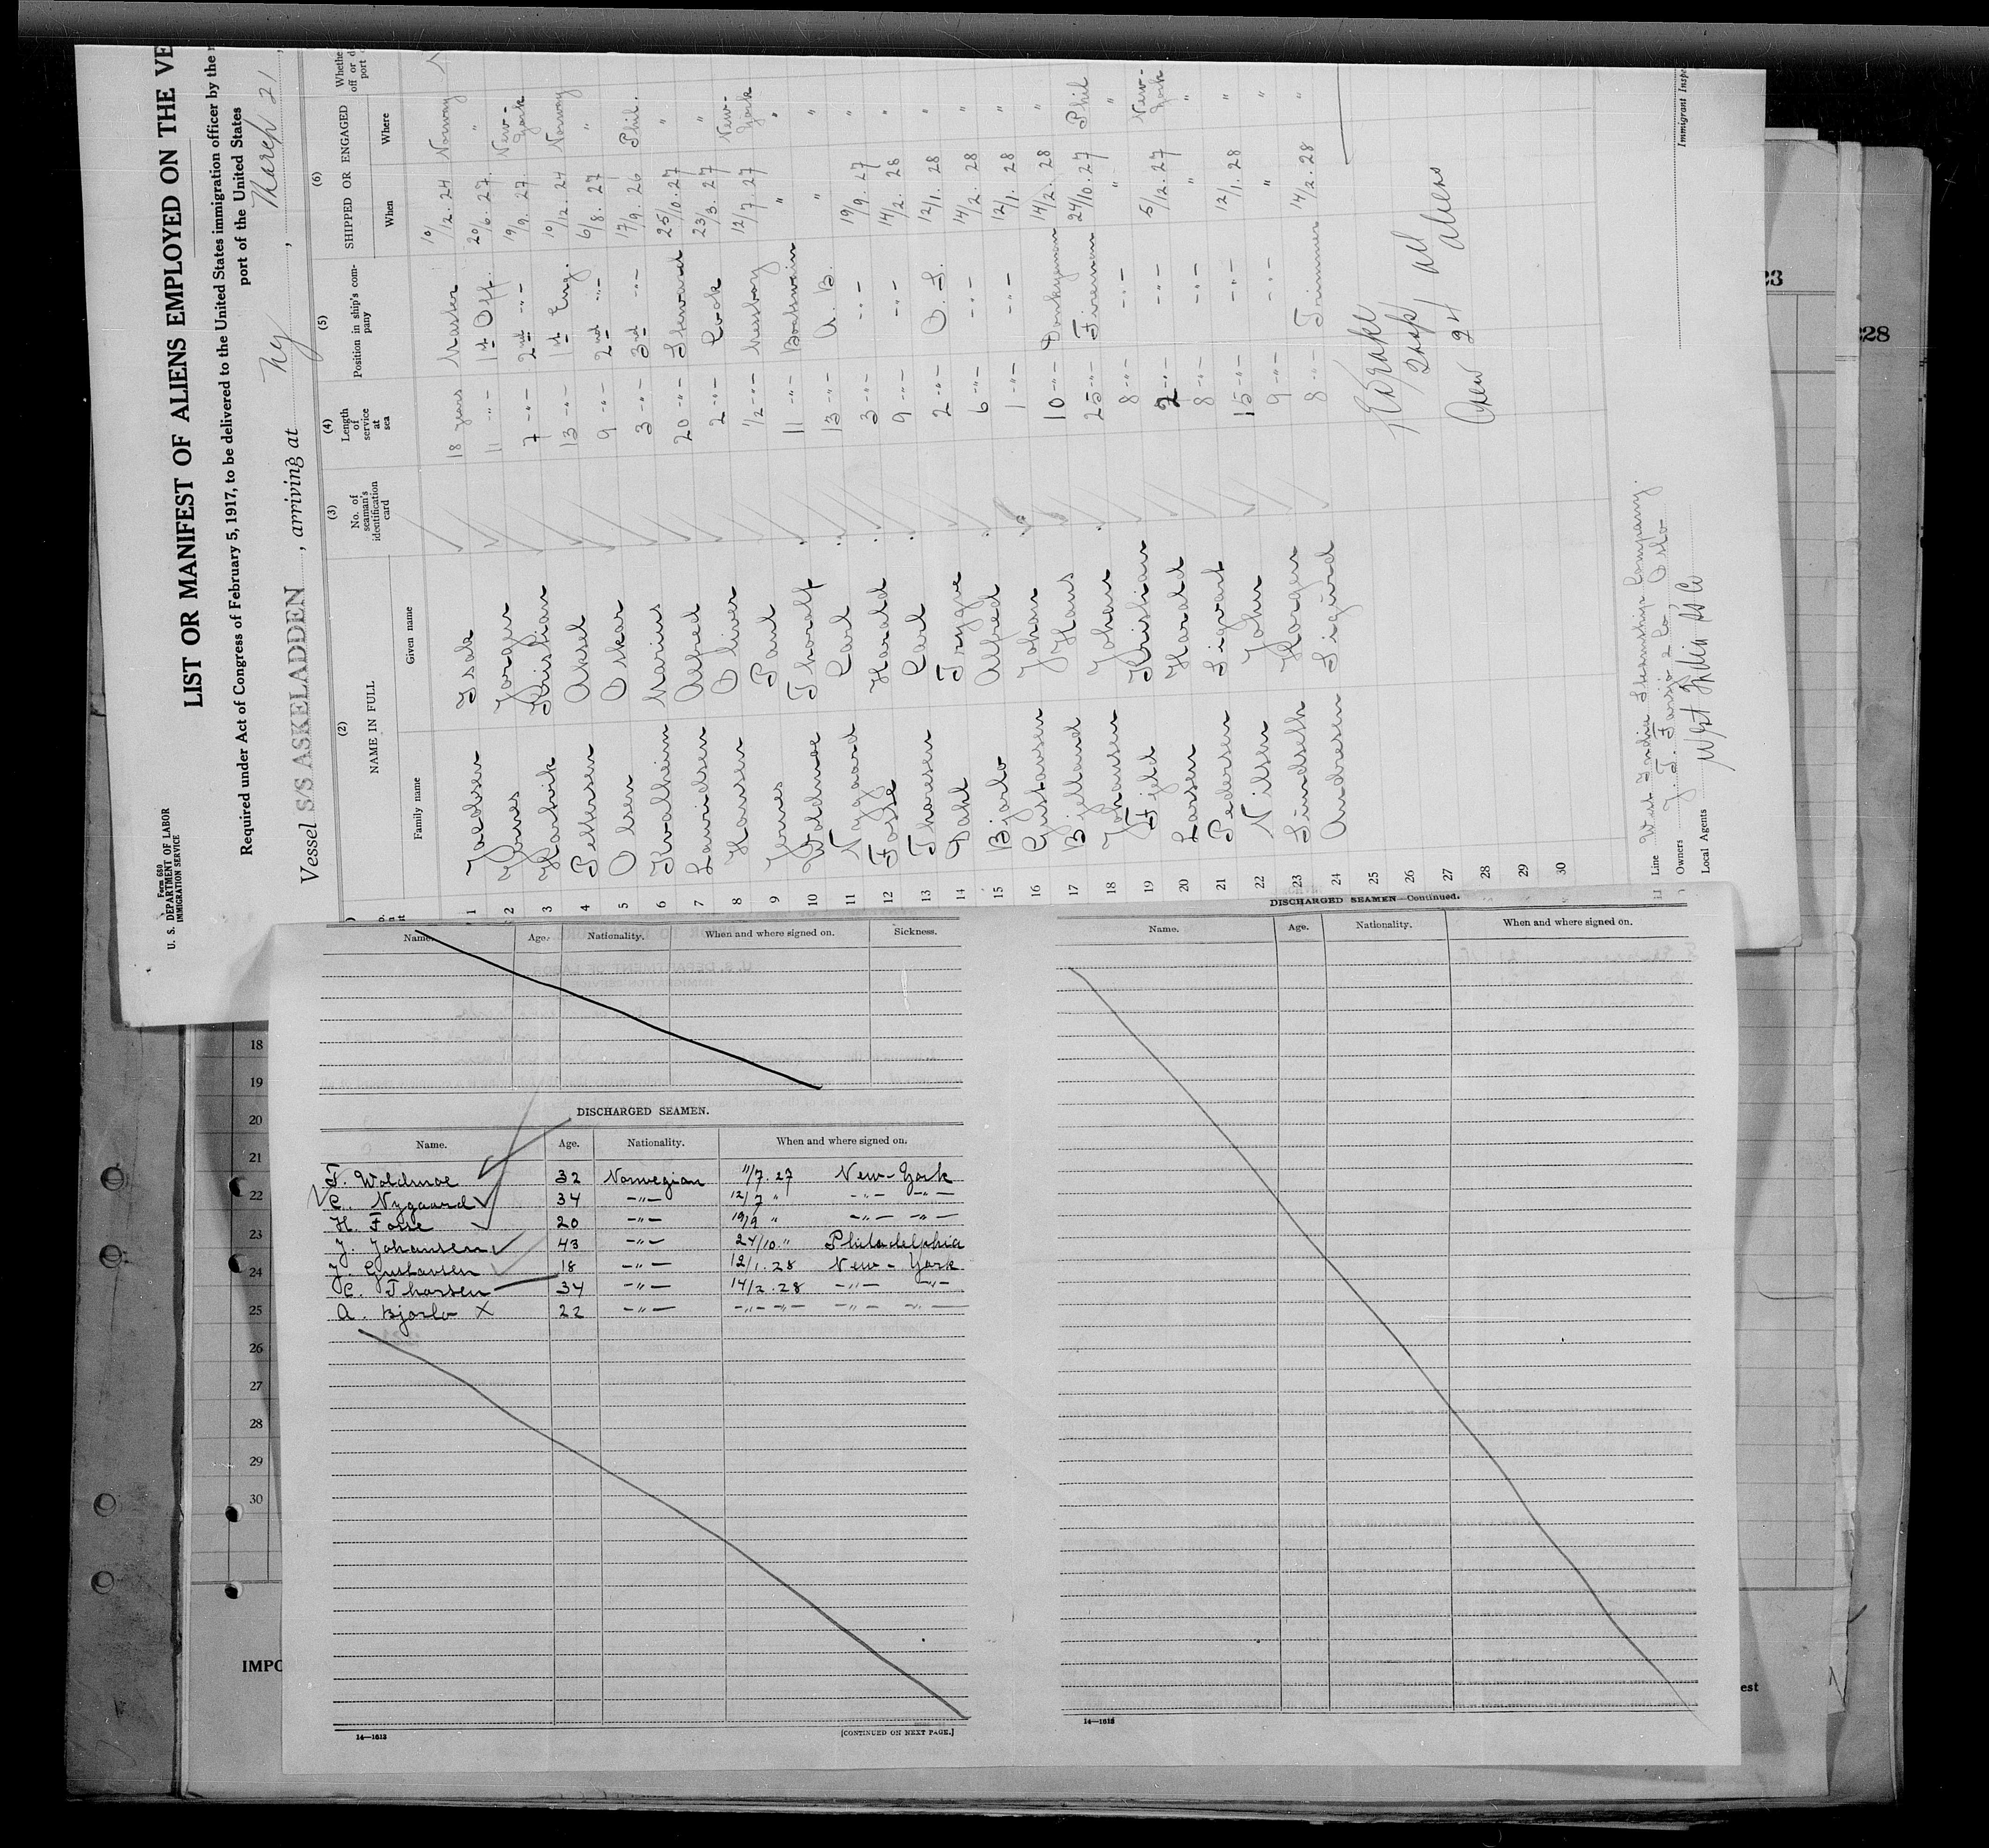 Form 680
U. S. DEPARTMENT OF LABOR
IMMIGRATION SERVICE
LIST OR MANIFEST OF ALIENS EMPLOYED ON THE VE
Required under Act of Congress of February 5, 1917, to be delivered to the United States immigration officer by the
port of the United States
Vessel S/S ASKELADDEN, arriving at Ny, March 21,
(2) (3) (4) (5) (6)
NAME IN FULL No. of seaman's identification card Length of service at sea Position in ship's company SHIPPED OR ENGAGED Whethe
Family name Given name When Where off or d
port
1 Jacobsen Isak 18 years Master 10/12.24 Norway
2 Jørgen 11 -"- 1st Off. 20/6.27 "
3 Kristian 7 -"- 2nd -"- 19/9.27 New-York
4 Pettersen Aksel 13 -"- 1st Eng. 10/12.24 Norway
5 Olsen Oskar 9 -"- 2nd -"- 6/8.27 "
6 Kvalheim Marius 3 -"- 3rd -"- 17/9.26 Phil.
7 Lauridsen Alfred 20 -"- Steward 25/10.27 "
8 Hansen Oliver 2 -"- Cook 23/3.27 "
9 Paul ½ -"- Messboy 12/7.27 New-York
10 Woldmoe Thoralf 11 -"- Boatswain " "
11 Nygaard Carl 13 -"- A. B. " "
12 Fosse Harald 3 -"- -"- 19/9.27 "
13 Thoresen Carl 9 -"- -"- 14/2.28 "
14 Dahl Trygve 2 -"- O. S. 12/1.28 "
15 Bjørlo Alfred 6 -"- -"- 14/2.28 "
16 Gustavsen Johan 1 -"- -"- 12/1.28 "
17 Bjelland Hans 10 -"- Donkeyman 14/2.28 "
18 Johansen Johan 25 -"- Fireman 24/10.27 Phil
19 Fjeld Kristian 8 -"- -"- " "
20 Larsen Harald 2 -"- -"- 5/12.27 New-York
21 Pedersen Sigvart 8 -"- -"- " "
22 Nilsen John 15 -"- -"- 12/1.28 "
23 Lindseth Jørgen 9 -"- -"- " "
24 Andresen Sigurd 8 -"- Trimmer 14/2.28 "
25
26
27
28
29
30
Crew 24 all aliens
Line West India Steamship Company.
Owners Oslo
Local Agents West India SS Co
Immigrant Inspe
Name. Age. Nationality. When and where signed on. Sickness.
DISCHARGED SEAMEN.
Name. Age. Nationality. When and where signed on.
T. Woldmoe 32 Norwegian 11/7.27 New-York
C. Nygaard 34 -"- 12/7 " -"- -"-
H. Fosse 20 -"- 19/9 " -"- -"-
J. Johansen 43 -"- 24/10 " Philadelphia
J. Gustavsen 18 -"- 12/1.28 New-York
C. Thorsen 34 -"- 14/2.28 -"- -"-
A. Bjørlo X 22 -"- -"- -"- -"- -"-
14—1613 [CONTINUED ON NEXT PAGE.]
DISCHARGED SEAMEN—Continued.
Name. Age. Nationality. When and where signed on.
14—1613
18
19
20
21
22
23
24
25
26
27
28
29
30
IMPO
est